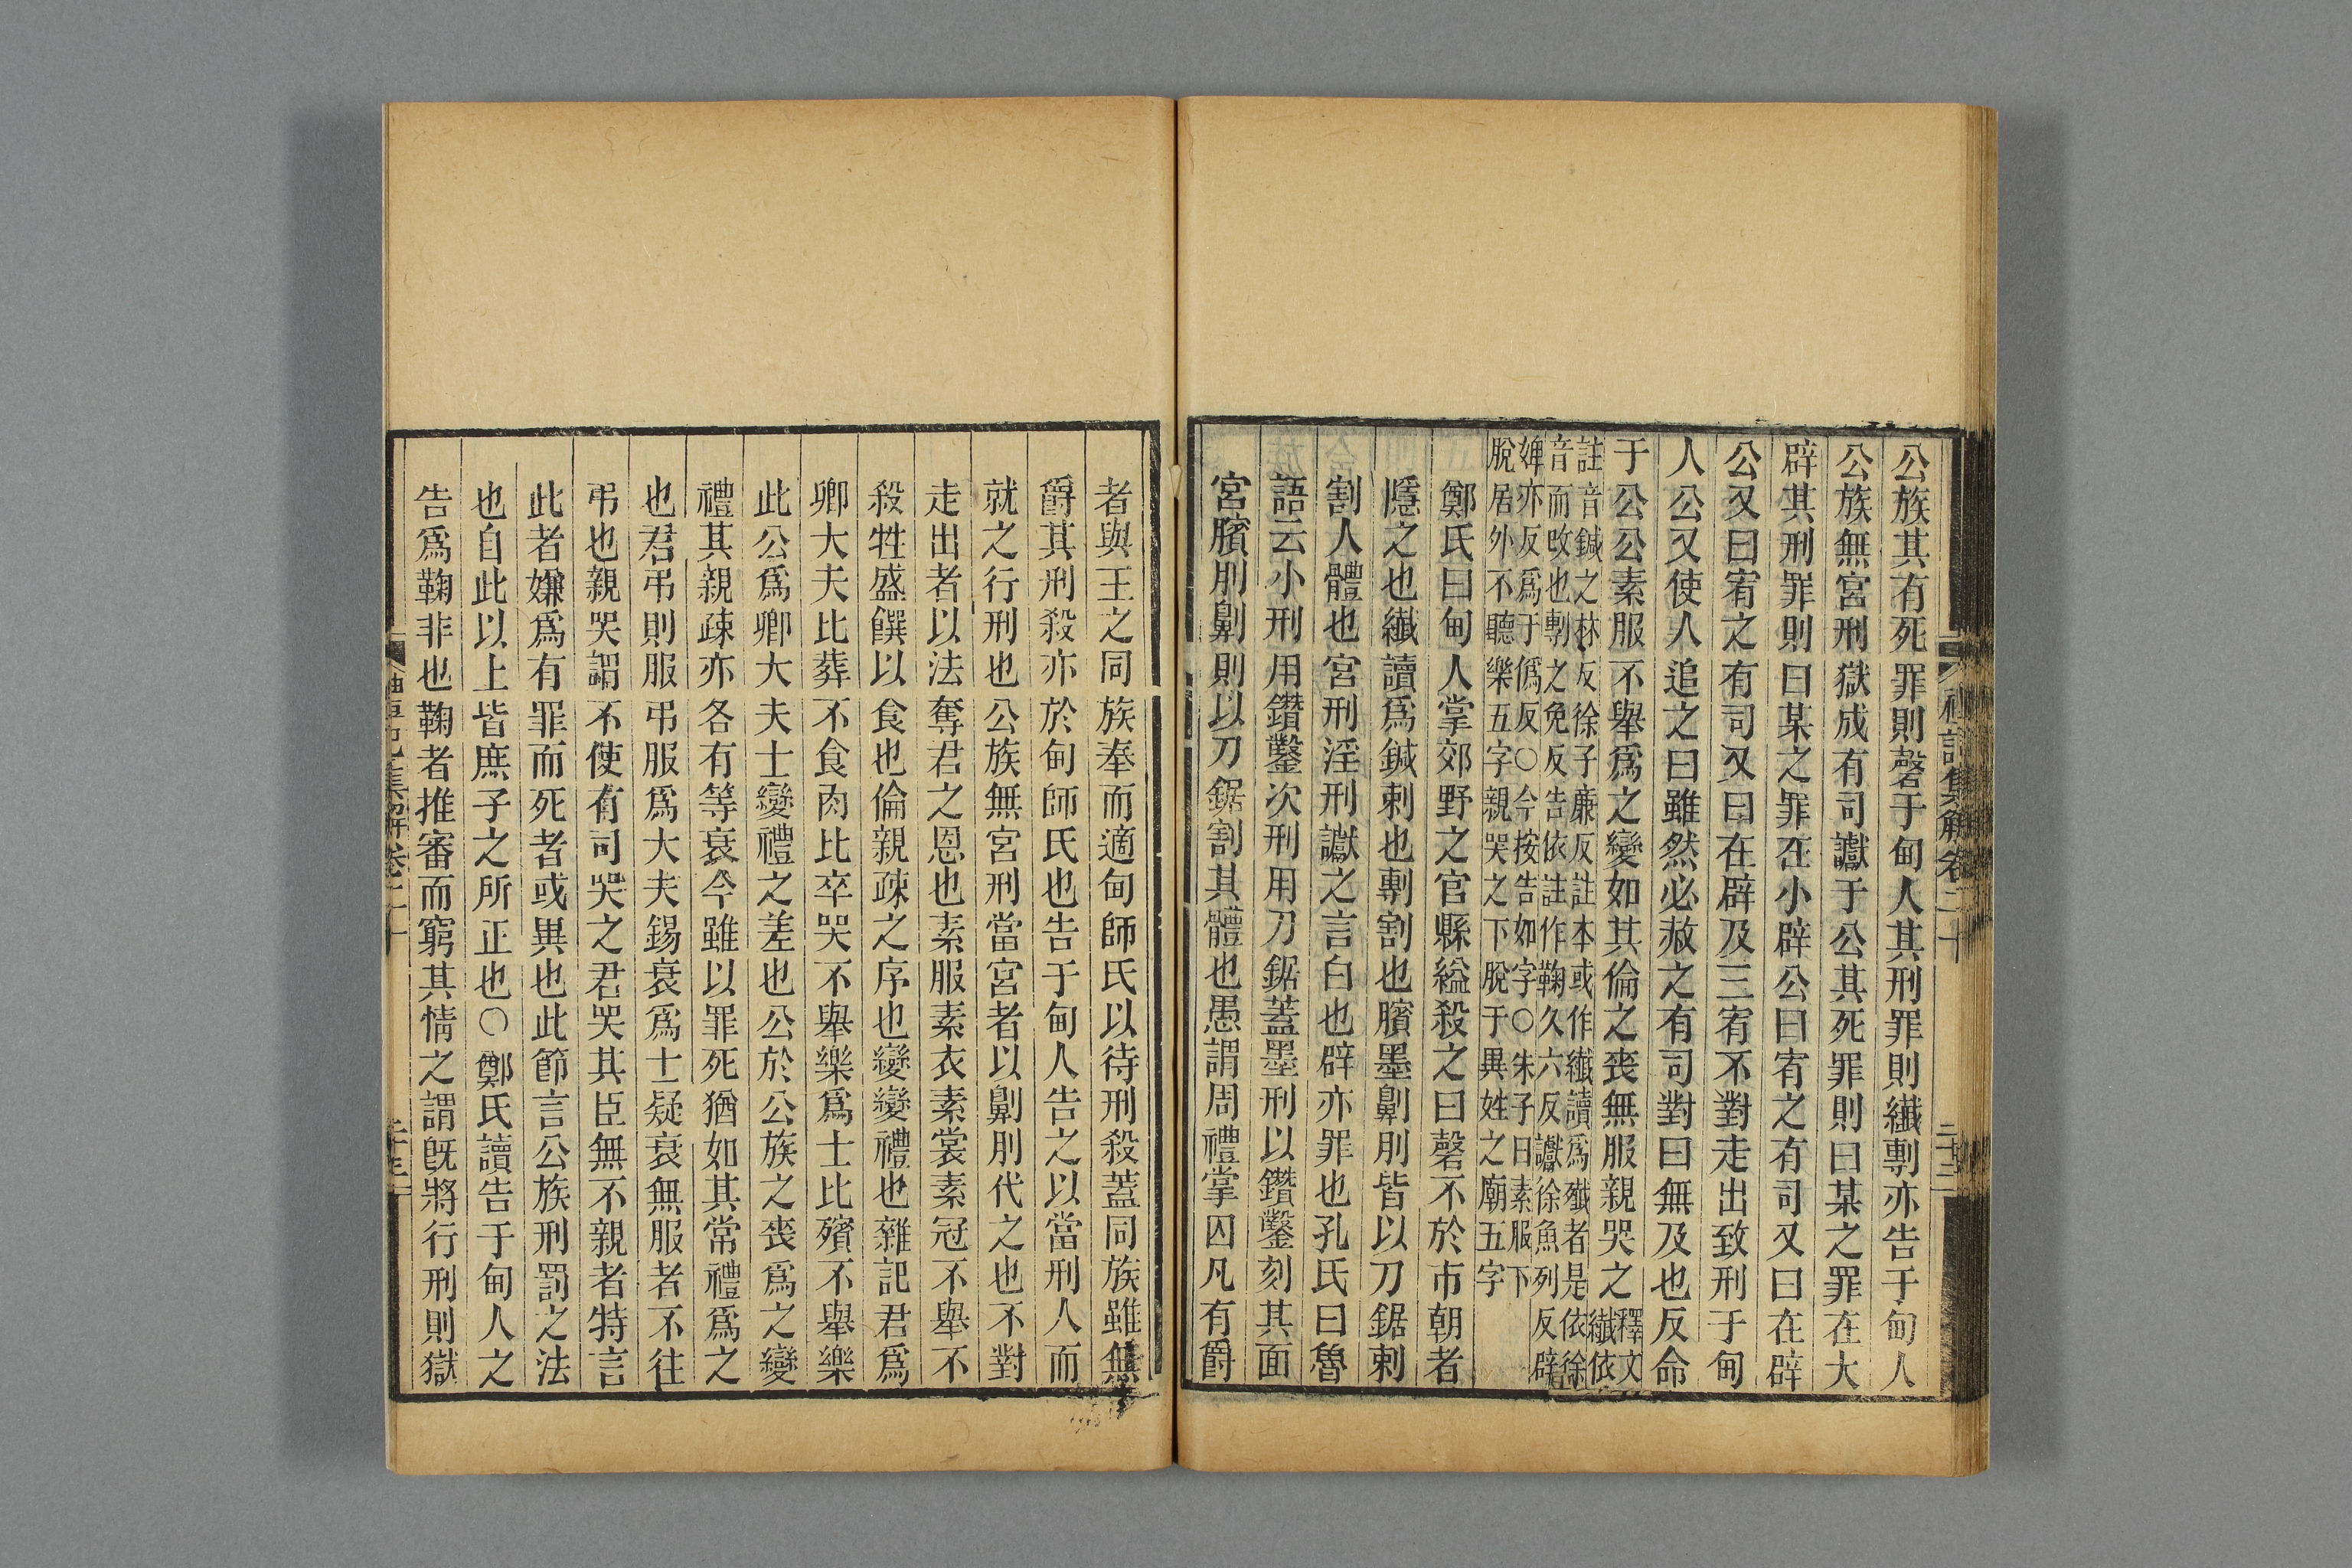 禮記集解卷二十
二十二
公族其有死罪則磬于甸人其刑罪則纖剸亦告于甸人
公族無宮刑獄成有司讞于公其死罪則曰某之罪在大
辟其刑罪則曰某之罪在小辟公曰宥之有司又曰在辟
公又曰宥之有司又曰在辟及三宥不對走出致刑于甸
人公又使人追之曰雖然必赦之有司對曰無及也反命
于公公素服不舉爲之變如其倫之喪無服親哭之釋文
纖依
註音鍼之林反徐子廉反註本或作纖讀爲殲者是依徐
音而改也剸之免反告依註作鞠久六反讞徐魚列反辟
婢亦反爲于僞反○今按告如字○朱子曰素服下
脫居外不聽樂五字親哭之下脫于異姓之廟五字
鄭氏曰甸人掌郊野之官縣縊殺之曰磬不於市朝者
隱之也纖讀爲鍼刺也剸割也臏墨劓刖皆以刀鋸刺
割人體也宮刑淫刑讞之言白也辟亦罪也孔氏曰魯
語云小刑用鑽鑿次刑用刀鋸蓋墨刑以鑽鑿刻其面
宮臏刖劓則以刀鋸割其體也愚謂周禮掌囚凡有爵
者與王之同族奉而適甸師氏以待刑殺蓋同族雖無
爵其刑殺亦於甸師氏也告于甸人告之以當刑人而
就之行刑也公族無宮刑當宮者以劓刖代之也不對
走出者以法奪君之恩也素服素衣素裳素冠不舉不
殺牲盛饌以食也倫親疎之序也變變禮也雜記君爲
卿大夫比葬不食肉比卒哭不舉樂爲士比殯不舉樂
此公爲卿大夫士變禮之差也公於公族之喪爲之變
禮其親疎亦各有等衰今雖以罪死猶如其常禮爲之
也君弔則服弔服爲大夫錫衰爲士疑衰無服者不往
弔也親哭謂不使有司哭之君哭其臣無不親者特言
此者嫌爲有罪而死者或異也此節言公族刑罰之法
也自此以上皆庶子之所正也○鄭氏讀告于甸人之
告爲鞠非也鞠者推審而窮其情之謂旣將行刑則獄